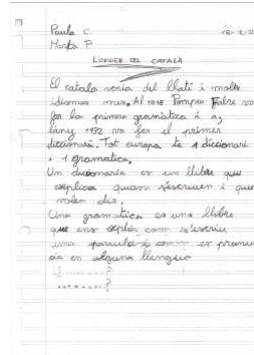 Paula C.
Marta P
L'ORIGEN DEL CATALÀ
El catala venia del llatí i molts
idiomas mes. Al 1918 Pompeu Fabre va
fer la primera gramàtica i a
lany 1932 va fer el primer
diccionari. Tot europa te 1 diccionari
i 1 gramatica.
Un diccionaria es un llibre que
esplica quam s'escriuen i que
volen dir.
Una gramatica es una llibre
que ens explica com s'escriu
una paraula i com es pronu
cia en alguna llengua
i ........?
........?